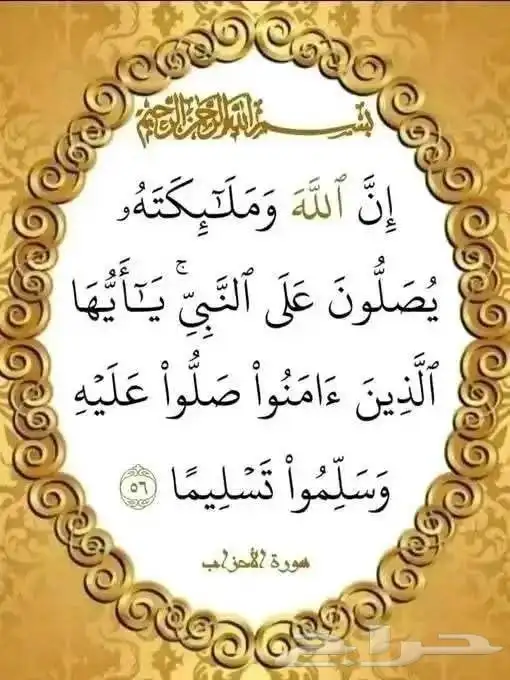 بسم الله الرحمن الرحيم
إِنَّ ٱللَّهَ وَمَلَـٰٓئِكَتَهُۥ
يُصَلُّونَ عَلَى ٱلنَّبِىِّ ۚ يَـٰٓأَيُّهَا
ٱلَّذِينَ ءَامَنُوا۟ صَلُّوا۟ عَلَيْهِ
وَسَلِّمُوا۟ تَسْلِيمًا ٥٦
سورة الأحزاب
حراج